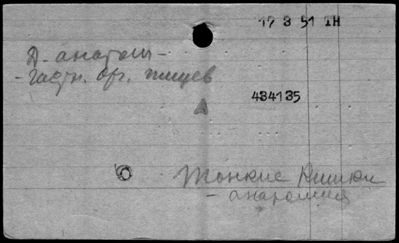 17 3 51 IH
Д. анатом –
– частн. орг. пищев
434135
б
Тонкие кишки
– анатомия